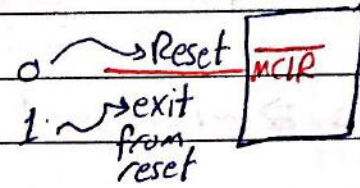 0 Reset
MCLR
1 exit
from
reset